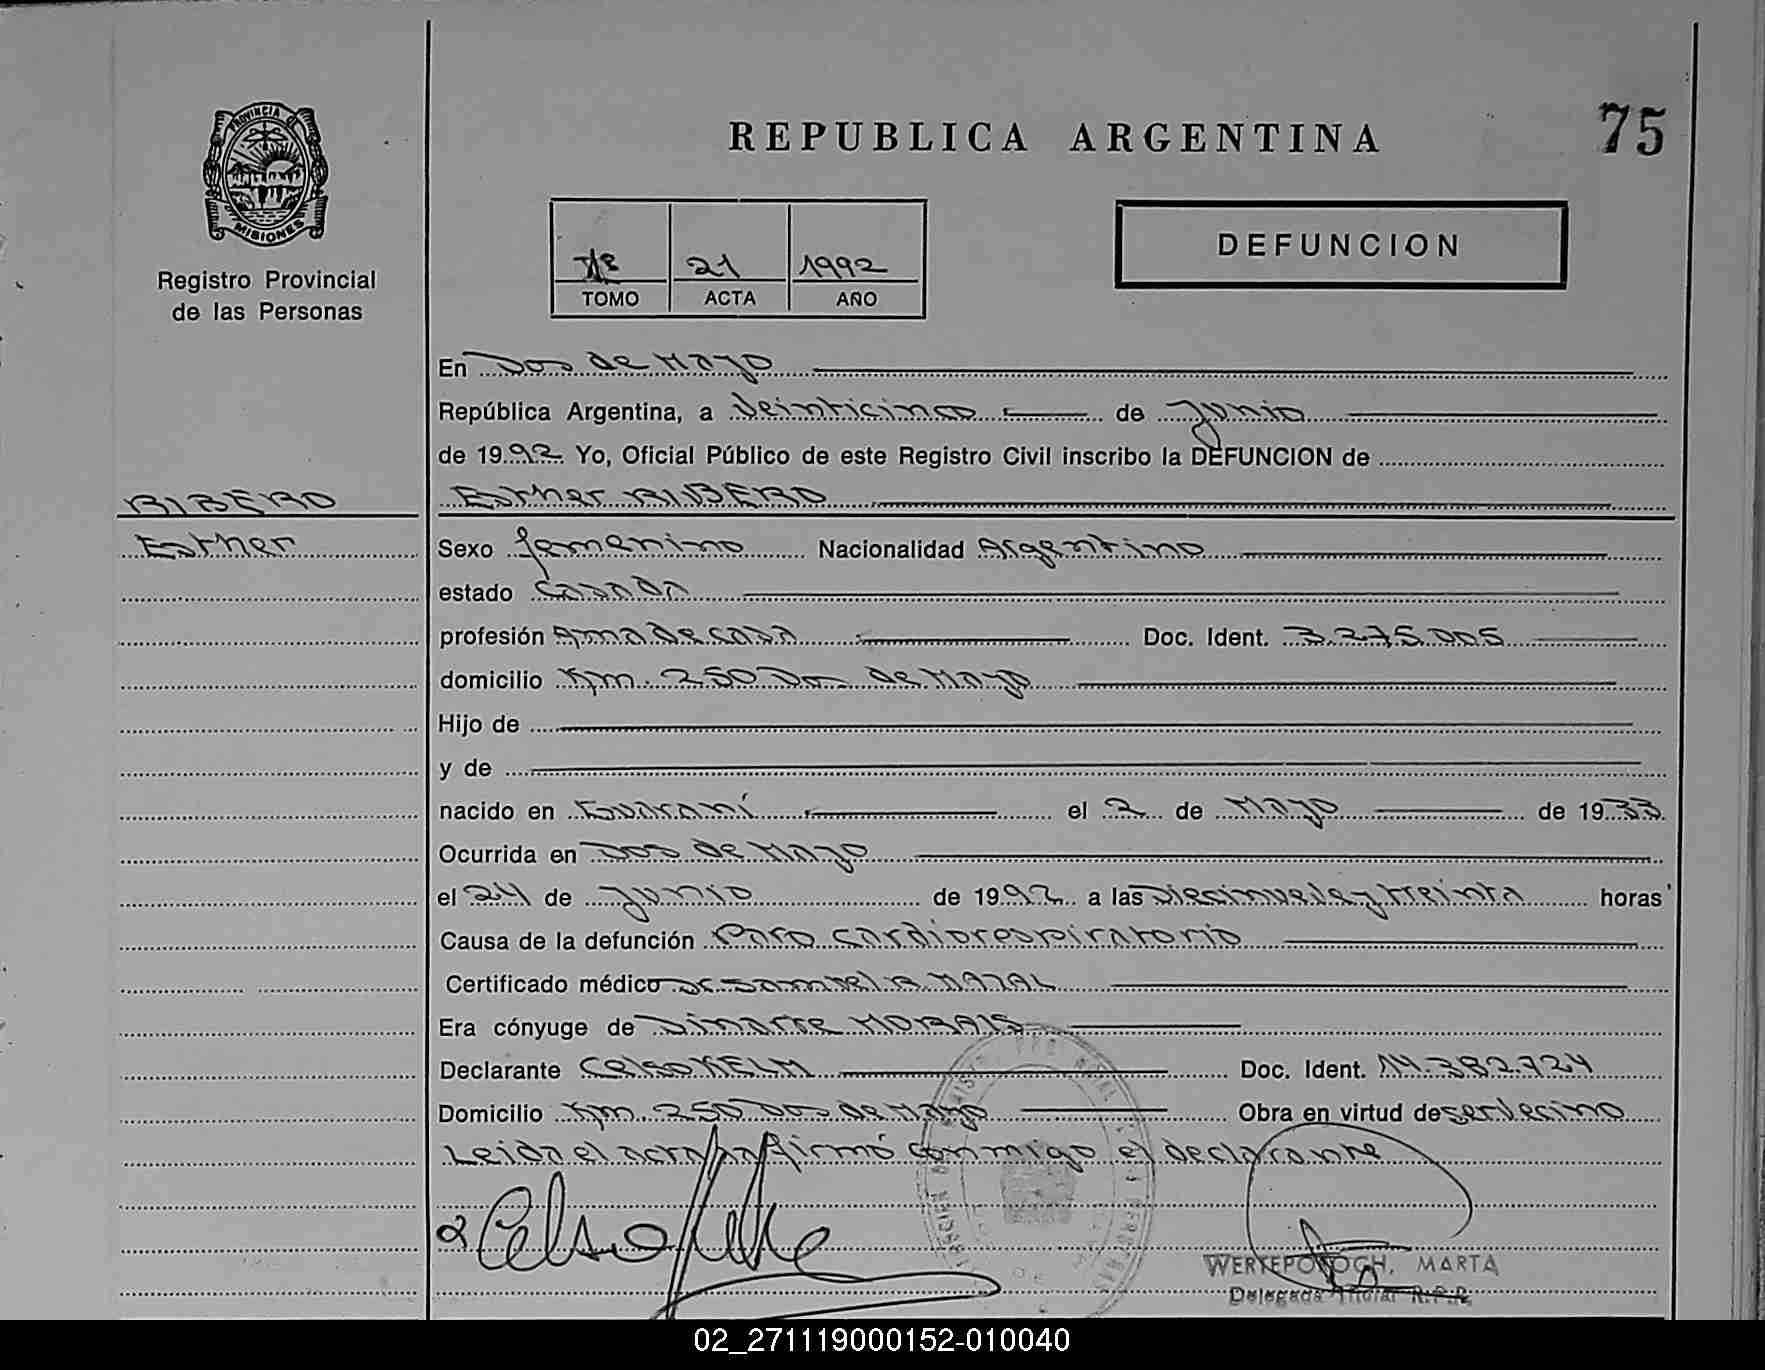 REPUBLICA ARGENTINA
75
PROVINCIA DE
MISIONES
Registro Provincial
de las Personas
21 1992
TOMO ACTA AÑO
DEFUNCION
En Dos de Mayo
República Argentina, a Veinticinco de Junio
de 1992 Yo, Oficial Público de este Registro Civil inscribo la DEFUNCION de
RIBERO
Esther RIBERO
Esther
Sexo femenino Nacionalidad Argentino
estado Casada
profesión Ama de casa Doc. Ident. 3.275.005
domicilio Km. 250 Dos de Mayo
Hijo de
y de
nacido en Guaraní el 2 de Mayo de 1933
Ocurrida en Dos de Mayo
el 24 de Junio de 1992 a las Diecinueve y treinta horas
Causa de la defunción Paro cardiorespiratorio
Certificado médico Dr Samuel
Era cónyuge de Dinarte MORAIS
Declarante Celso KELM Doc. Ident. 14.382.724
Domicilio Km. 250 Dos de Mayo Obra en virtud de ser Vecino
Leida el acta la firmó conmigo el declarante
Celso
MARTA
Delegada Titular R.P.P.
02_271119000152-010040